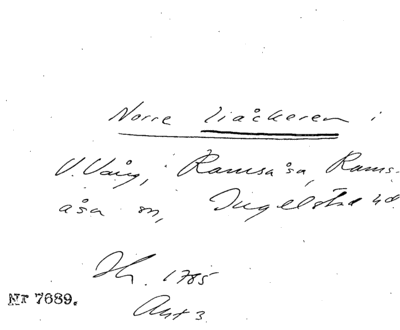 Norre Liåckeren i
V. Vång, Ramsåsa, Rams-
åsa sn, Ingelstad hd.
Jh. 1785
Akt 3
Nr 7689.